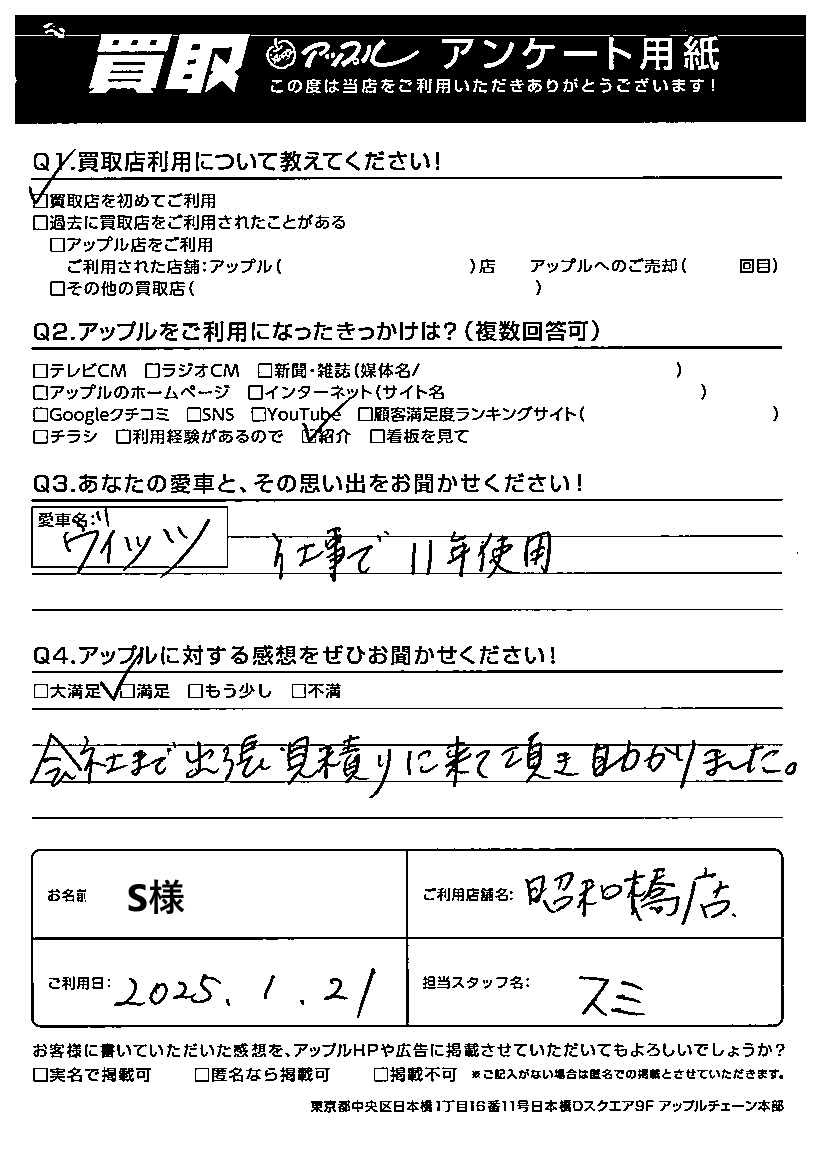 買取 アップル アンケート用紙
この度は当店をご利用いただきありがとうございます!
Q1.買取店利用について教えてください!
☑買取店を初めてご利用
□過去に買取店をご利用されたことがある
□アップル店をご利用
ご利用された店舗:アップル( )店 アップルへのご売却( 回目)
□その他の買取店( )
Q2.アップルをご利用になったきっかけは?(複数回答可)
□テレビCM □ラジオCM □新聞・雑誌(媒体名/ )
□アップルのホームページ □インターネット(サイト名 )
□Googleクチコミ □SNS □YouTube □顧客満足度ランキングサイト( )
□チラシ □利用経験があるので ☑紹介 □看板を見て
Q3.あなたの愛車と、その思い出をお聞かせください!
愛車名:
ヴィッツ 仕事で11年使用
Q4.アップルに対する感想をぜひお聞かせください!
□大満足 ☑満足 □もう少し □不満
会社まで出張見積りに来て頂き助かりました。
お名前 S様 ご利用店舗名: 昭和橋店
ご利用日: 2025. 1. 21 担当スタッフ名: スミ
お客様に書いていただいた感想を、アップルHPや広告に掲載させていただいてもよろしいでしょうか?
□実名で掲載可 □匿名なら掲載可 □掲載不可 ※ご記入がない場合は匿名での掲載とさせていただきます。
東京都中央区日本橋1丁目16番11号日本橋Dスクエア9F アップルチェーン本部